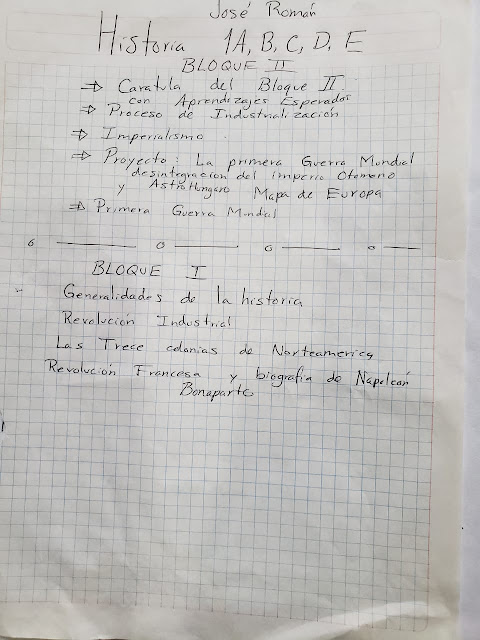 José Román
Historia 1A, B, C, D, E
BLOQUE II
⇒ Caratula del Bloque II
con Aprendizajes Esperados
⇒ Proceso de Industrialización
⇒ Imperialismo
⇒ Proyecto: La primera Guerra Mundial
desintegracion del imperio Otomano
y AstroHungaro Mapa de Europa
⇒ Primera Guerra Mundial
BLOQUE I
Generalidades de la historia
Revolución Industrial
Las Trece colonias de Norteamerica
Revolución Francesa y biografia de Napoleón
Bonaparte